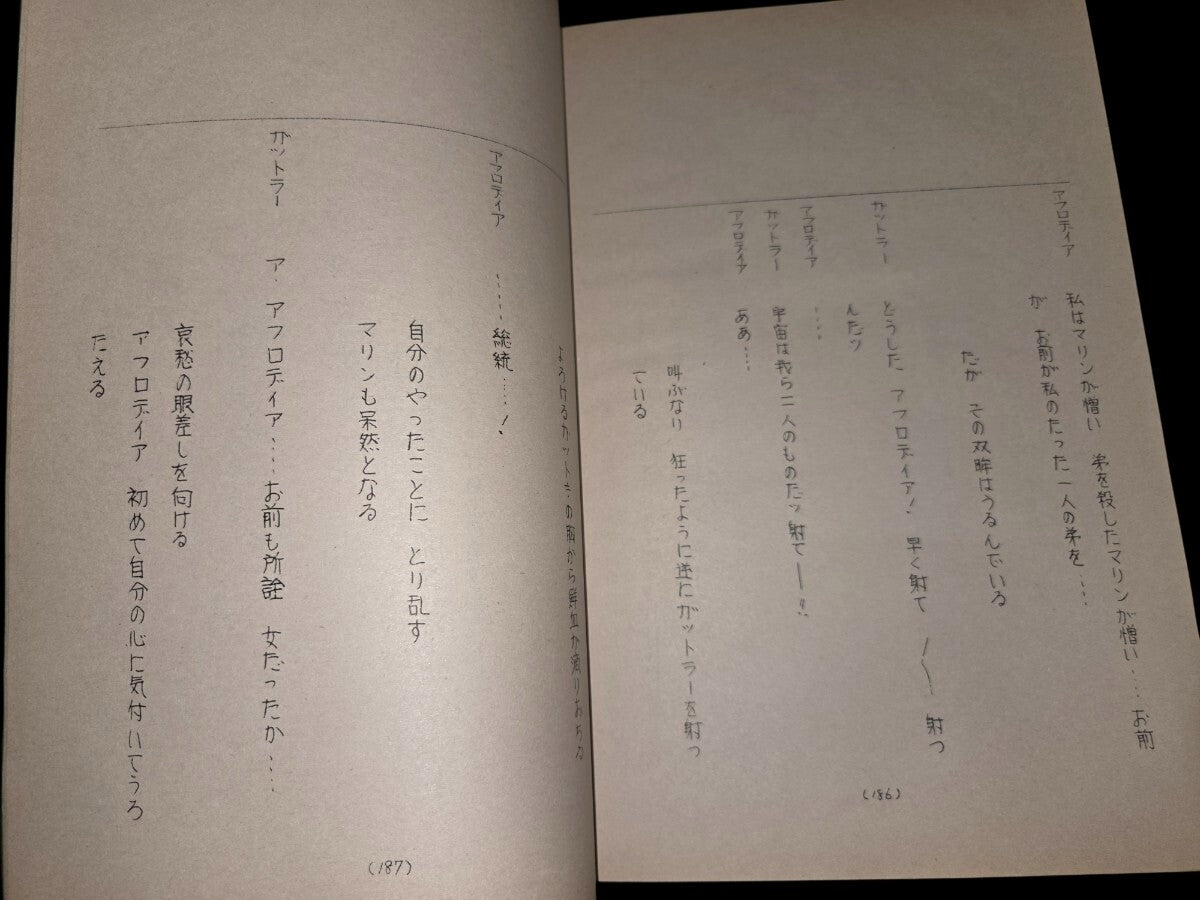 アフロディア 私はマリンが憎い 弟を殺したマリンが憎い‥‥お前
が お前が私のたった一人の弟を‥‥
だが その双眸はうるんでいる
ガットラー どうした アフロディア! 早く射て 射つ
んだッ
アフロディア ‥‥
ガットラー 宇宙は我ら二人のものだッ射てーー!!
アフロディア ああ‥‥
叫ぶなり 狂ったように逆にガットラーを射つ
ている
(186)
よろけるガットラの胸から鮮血が滴りおちる
アフロディア ‥‥‥総統‥‥!
自分のやったことに とり乱す
マリンも呆然となる
ガットラー ア・アフロディア‥‥お前も所詮 女だったか‥‥
哀愁の眼差しを向ける
アフロディア 初めて自分の心に気付いてうろ
たえる
(187)